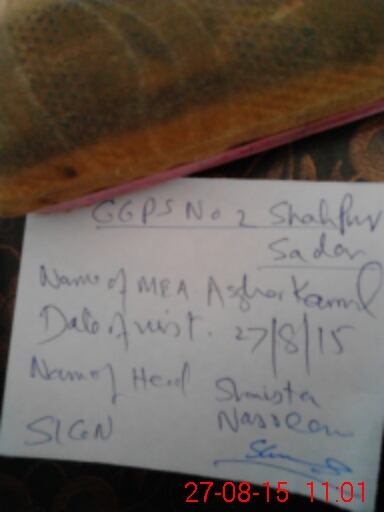 GGPS No 2 Shahpur
Sadar
Name of MEA Asghar Kamal
Date of visit. 27/8/15
Name of Head Shaista
Naseem
SIGN
27-08-15 11:01